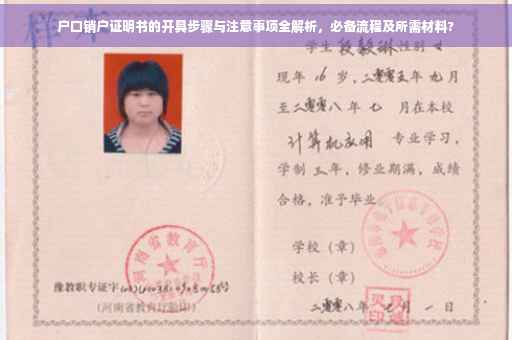 户口销户证明书的开具步骤与注意事项全解析，必备流程及所需材料?
样本
学生段毅琳性别女
现年16岁，二零零五年九月
至二零零八年七月在本校
计算机应用 专业学习，
学制三年，修业期满，成绩
合格，准予毕业
学校（章）
校长（章）
二零零八年七月一日
河南省教育厅
豫教职专证字
(河南省教育厅验印)